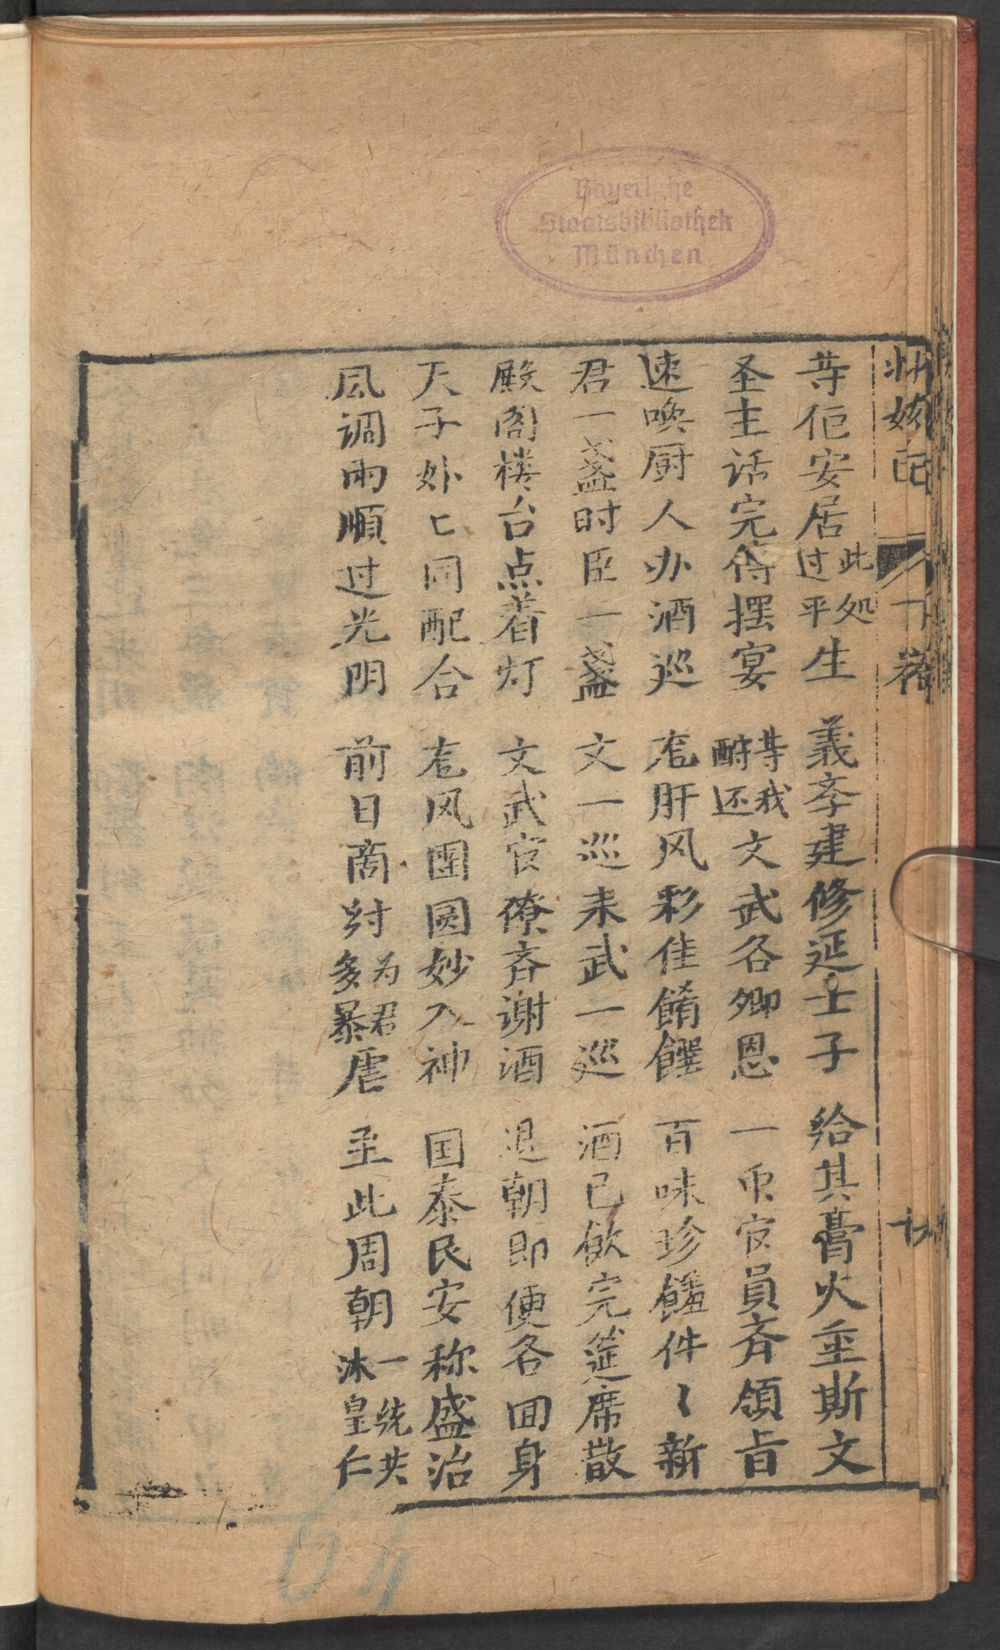 Staatsbibliothek
München
等佢安居此处过平生 義孝建修延士子 给其膏火重斯文
圣主话完偹摆宴 等我酧还文武各卿恩 一众官員斉領旨
速唤厨人办酒巡 龙肝风彩佳餚饌 百味珍饈件〻新
君一盏时臣一盏 文一巡来武一巡 酒已飲完筵席散
殿阁楼台点着灯 文武官僚斉谢酒 退朝即便各回身
天子妙匕同配合 龙风團圆妙入神 国泰民安称盛治
风调雨順过光阴 前日商紂为君多暴虐 至此周朝一统共沐皇仁
下卷